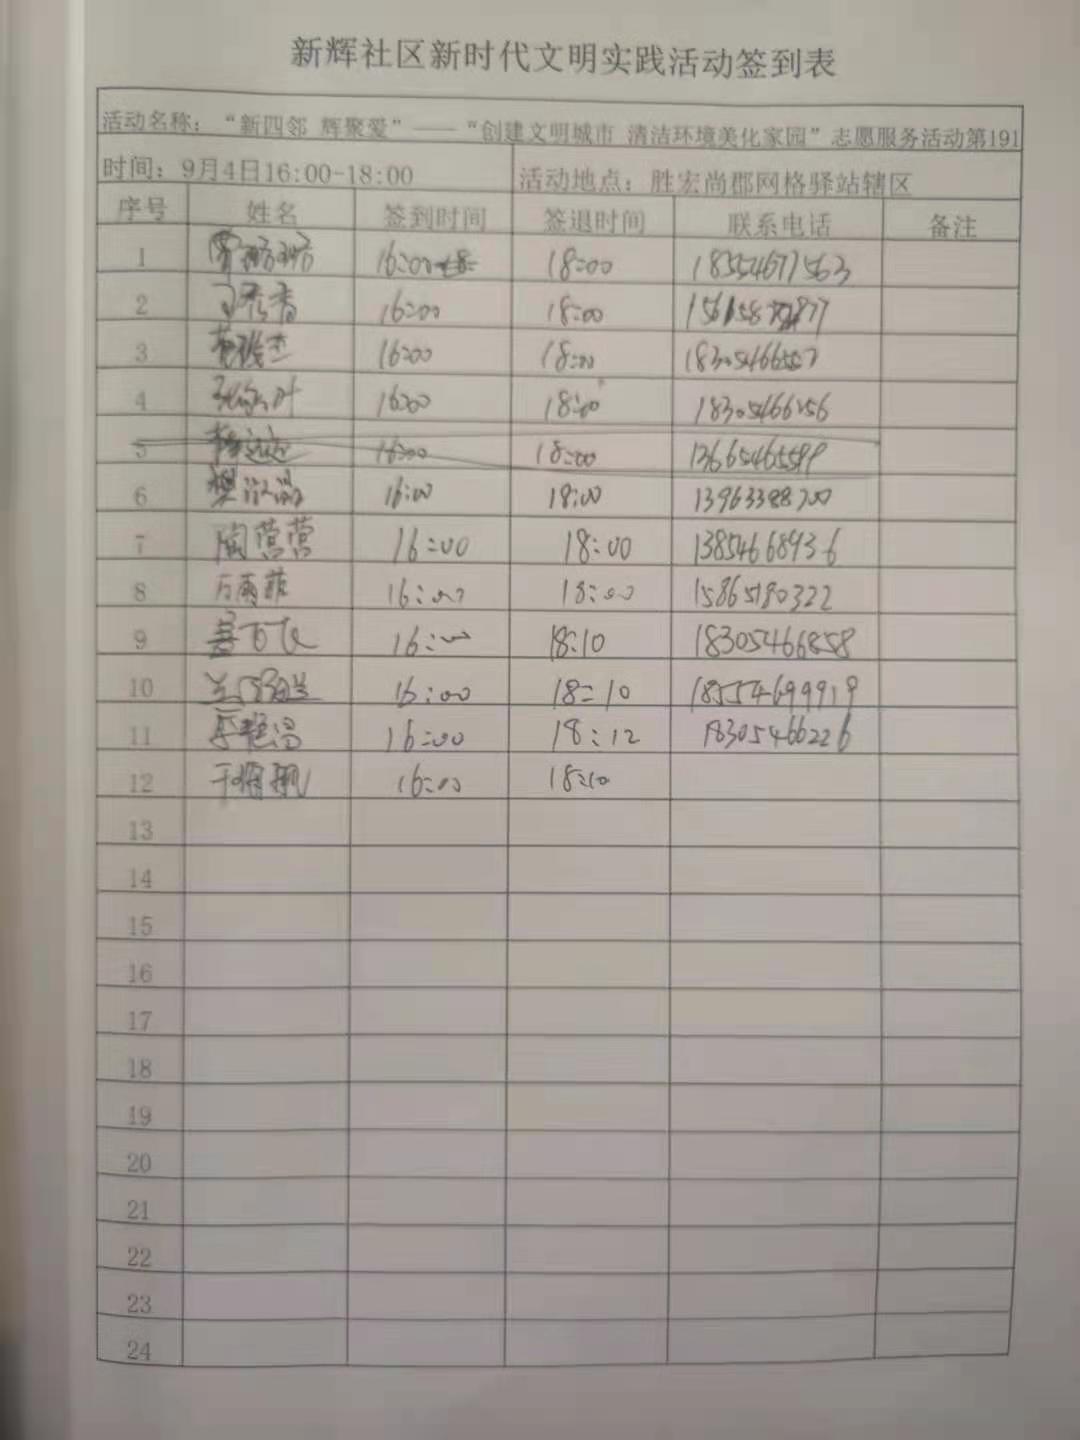 新辉社区新时代文明实践活动签到表
活动名称：“新四邻 辉聚爱”——“创建文明城市 清洁环境美化家园”志愿服务活动第191
时间：9月4日16:00-18:00 活动地点：胜宏尚郡网格驿站辖区
序号 姓名 签到时间 签退时间 联系电话 备注
1 16:00 18:00 18554677563
2 16:00 18:00
3 16:00 18:00 18305466557
4 16:00 18:00 18305466156
5 16:00 18:00 13665465599
6 16:00 18:00 13963388700
7 陶营营 16:00 18:00 13854668936
8 万雨菲 16:00 18:00 15865180322
9 16:00 18:10 18305466858
10 16:00 18:10 18554699919
11 16:00 18:12 18305466226
12 16:00 18:10
13
14
15
16
17
18
19
20
21
22
23
24